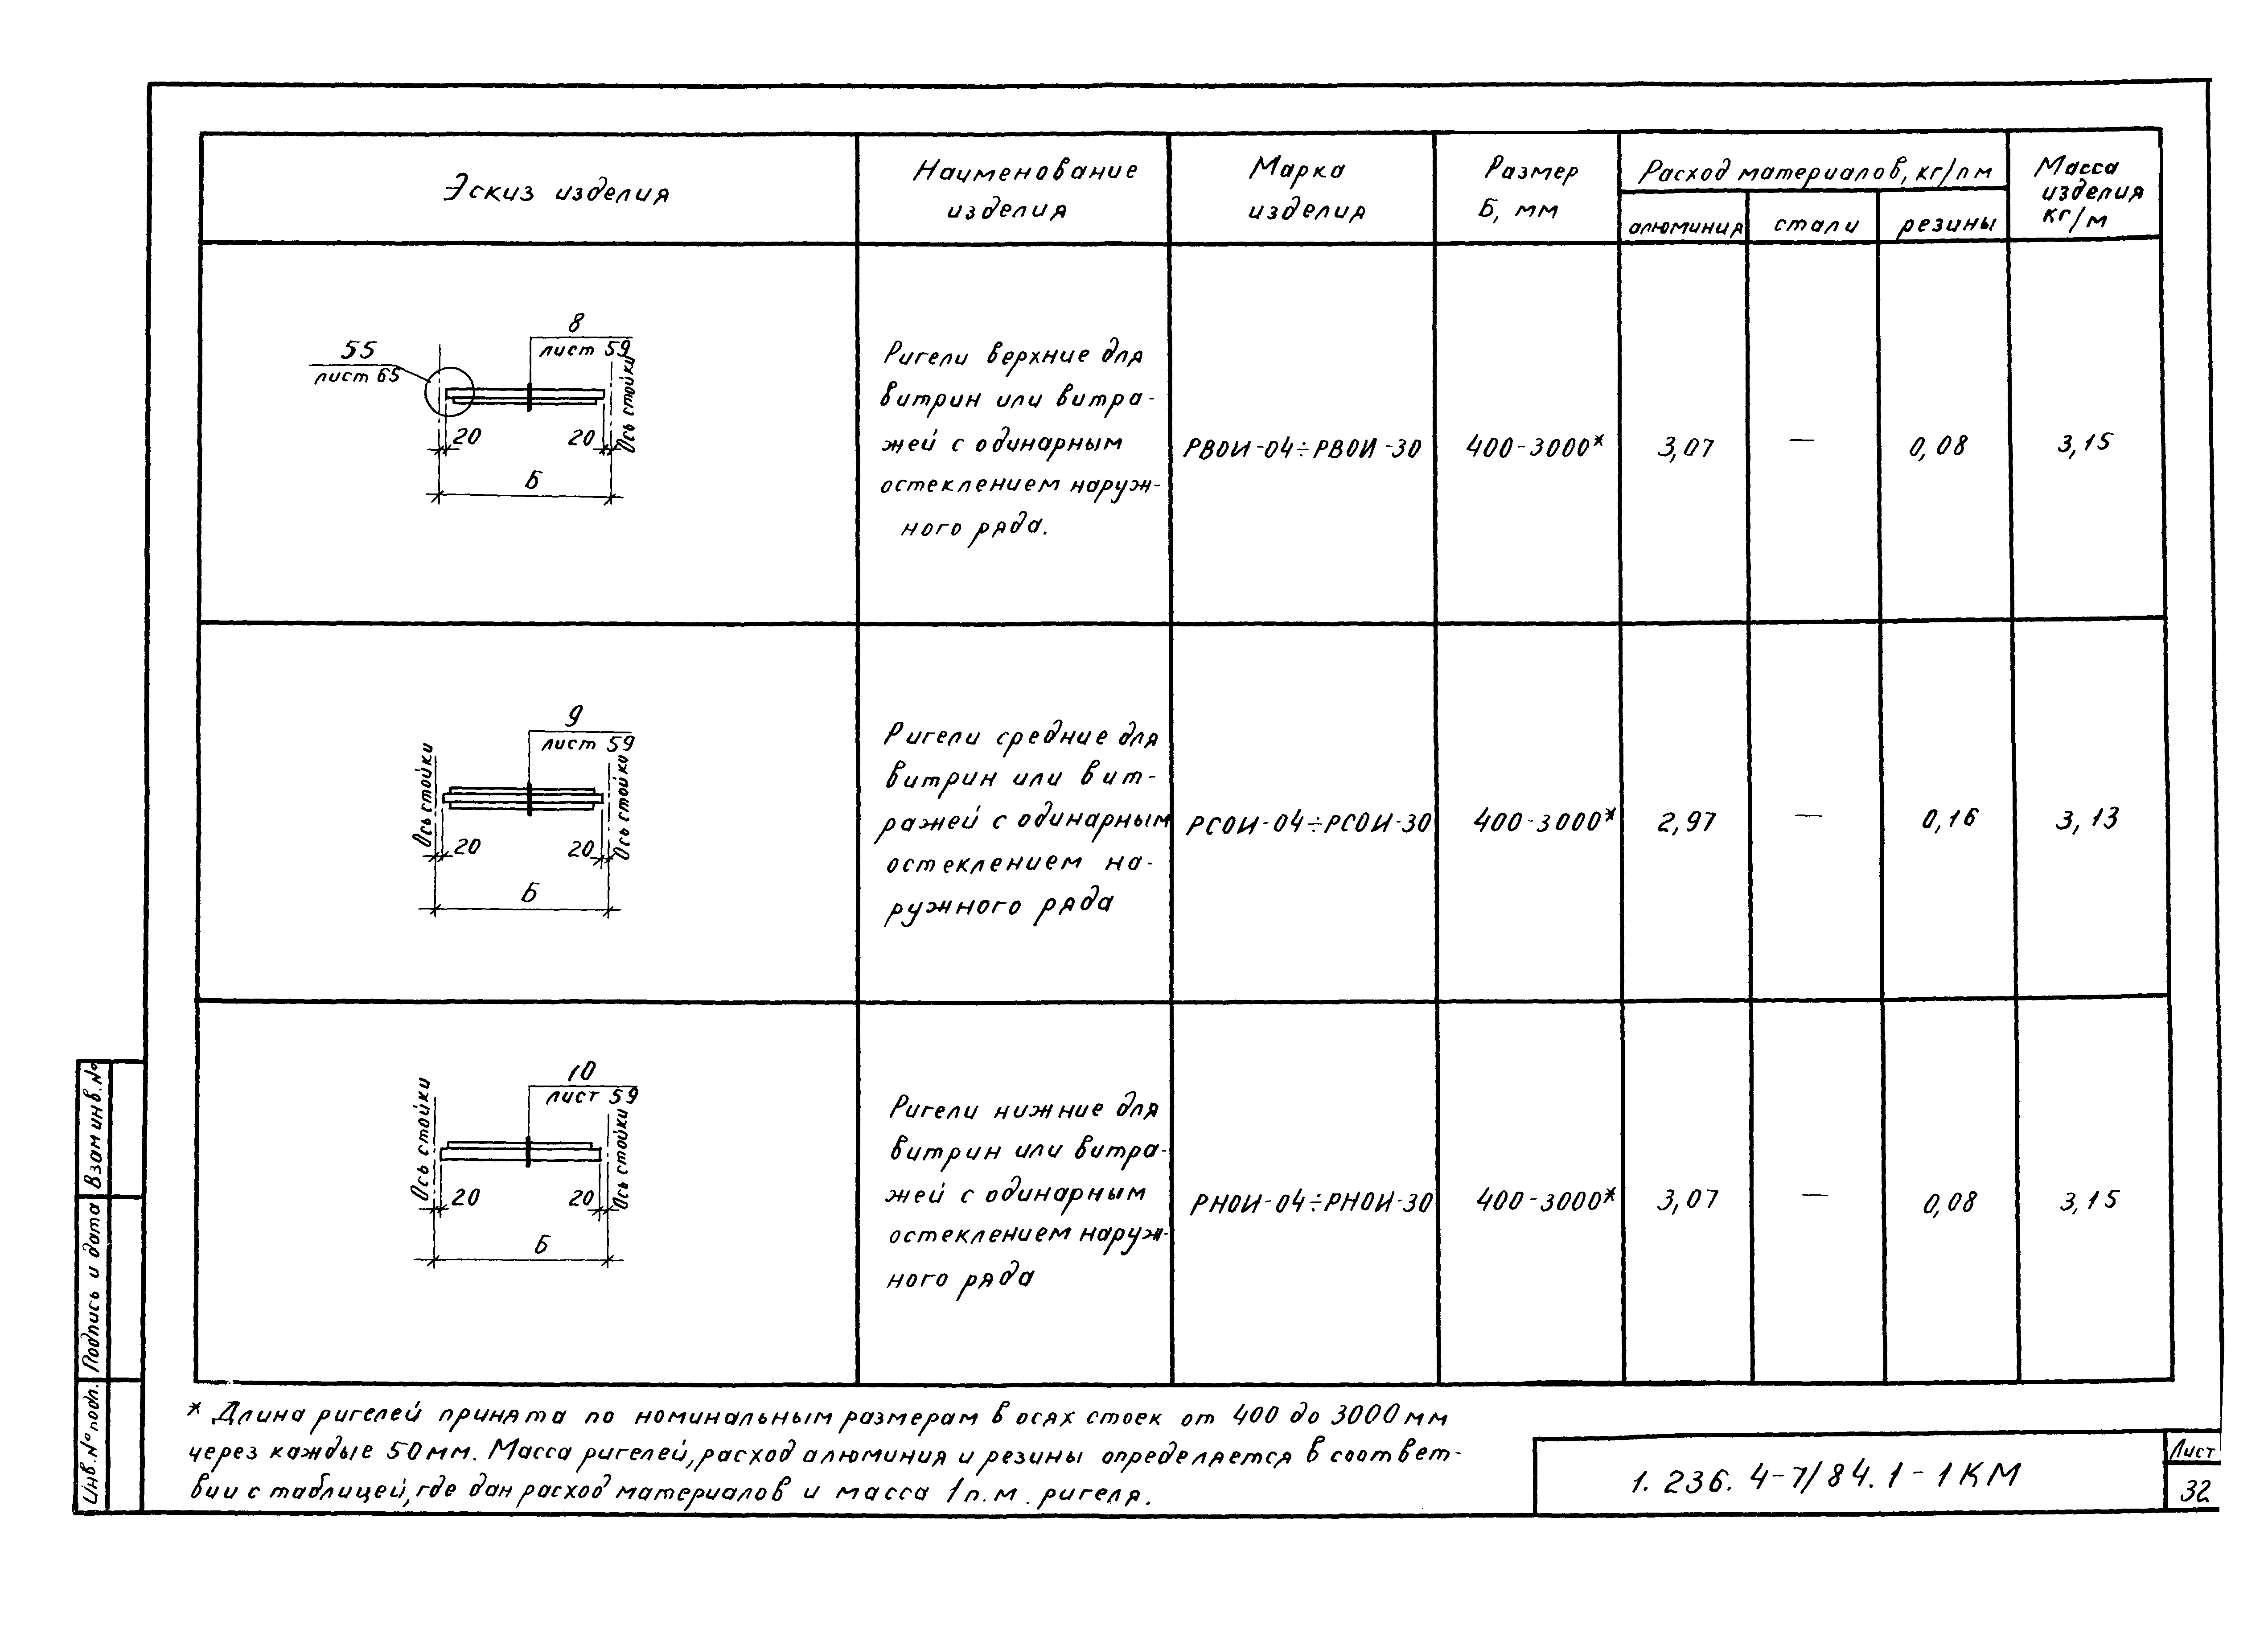 Эскиз изделия
Наименование
изделия
Марка
изделия
Размер
Б, мм
Расход материалов, кг/пм
алюминия
стали
резины
Масса
изделия
кг/м
8
лист 59
55
лист 65
Ось стойки
20
20
Б
Ригели верхние для
витрин или витра-
жей с одинарным
остеклением наруж-
ного ряда.
РВОИ-04÷РВОИ-30
400-3000*
3,07
—
0,08
3,15
9
лист 59
Ось стойки
Ось стойки
20
20
Б
Ригели средние для
витрин или вит-
ражей с одинарным
остеклением на-
ружного ряда
РСОИ-04÷РСОИ-30
400-3000*
2,97
—
0,16
3,13
10
лист 59
Ось стойки
Ось стойки
20
20
Б
Ригели нижние для
витрин или витра-
жей с одинарным
остеклением наруж-
ного ряда
РНОИ-04÷РНОИ-30
400-3000*
3,07
—
0,08
3,15
* Длина ригелей принята по номинальным размерам в осях стоек от 400 до 3000 мм
через каждые 50 мм. Масса ригелей, расход алюминия и резины определяется в соответ-
вии с таблицей, где дан расход материалов и масса 1 п.м. ригеля.
1.236.4-7/84.1-1КМ
Лист
32
Взам инв. №
Подпись и дата
Инв. № подл.